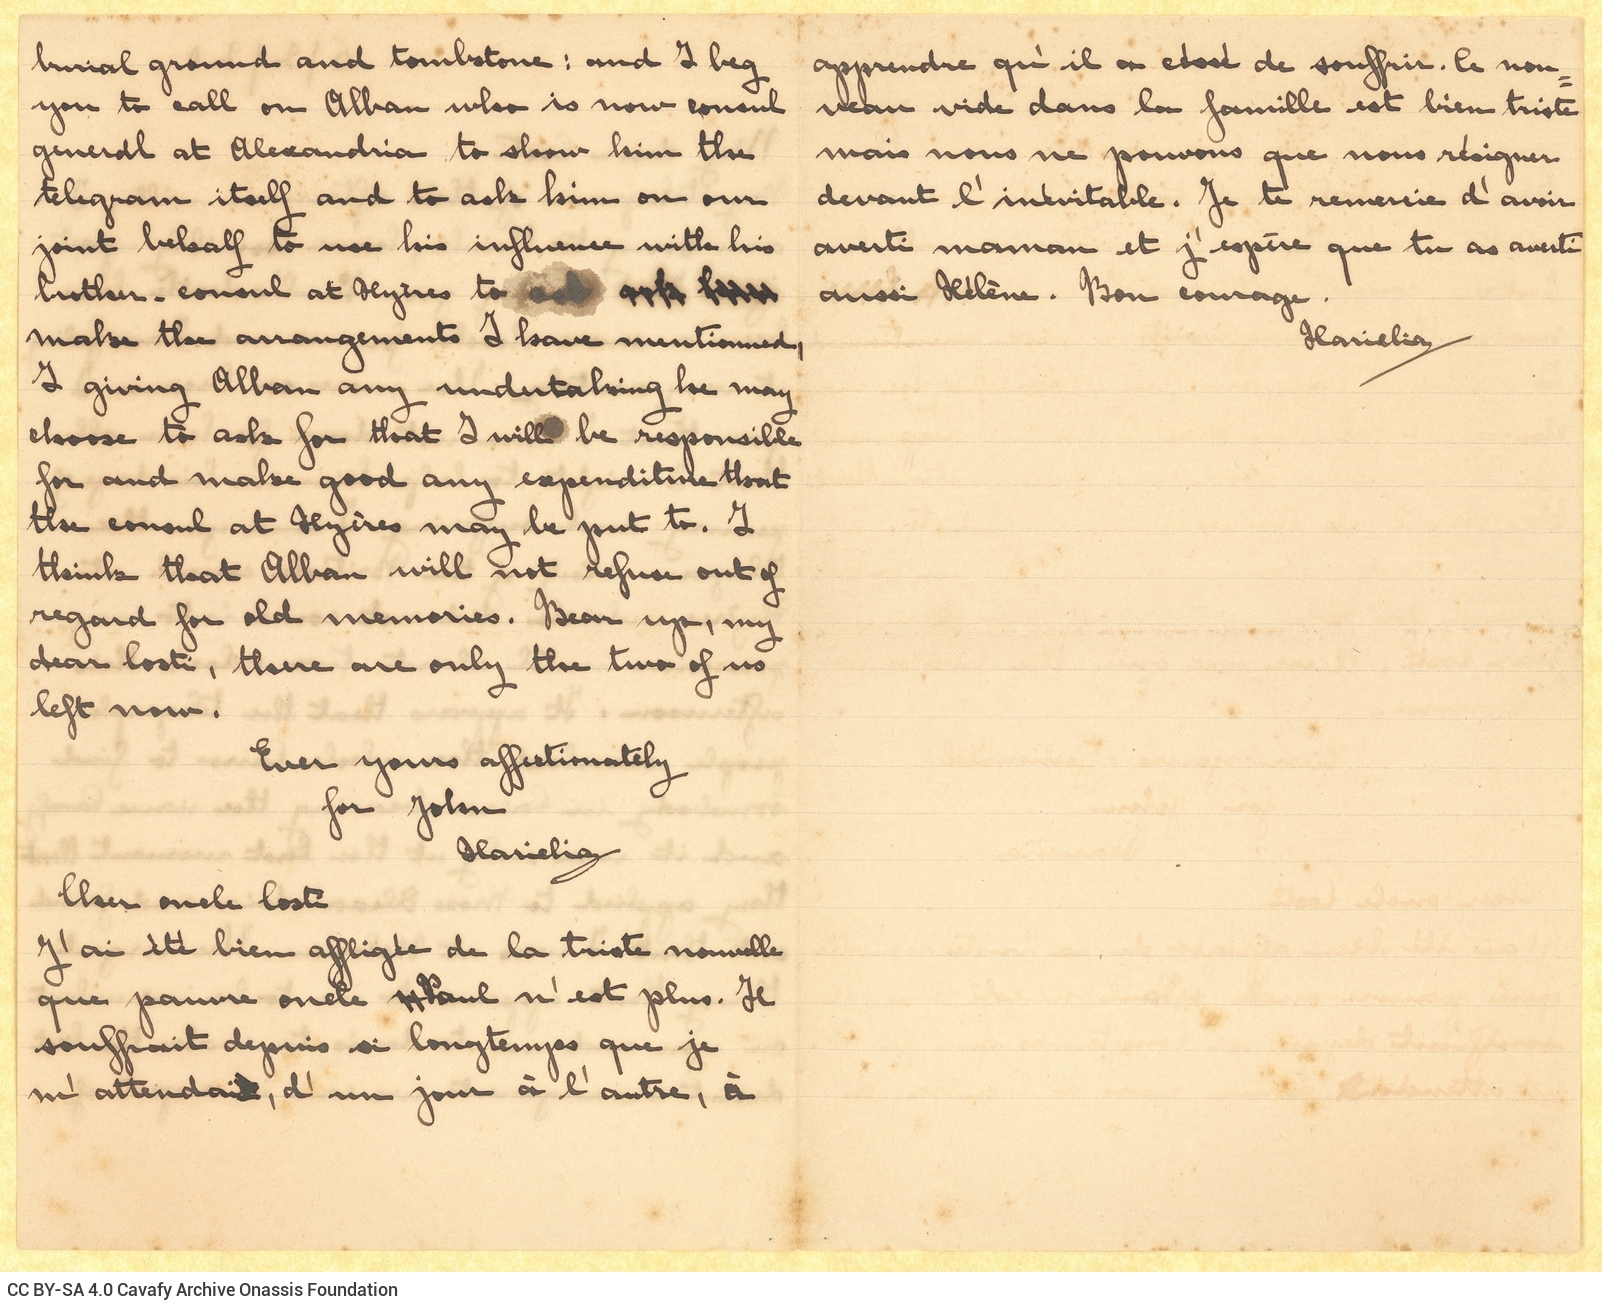 burial ground and tombstone: and I beg
you to call on Alban who is now consul
general at Alexandria to show him the
telegram itself and to ask him on our
joint behalf to use his influence with his
brother - consul at Hyères to
make the arrangements I have mentionned,
I giving Alban any undertaking he may
choose to ask for that I will be responsible
for and make good any expenditure that
the consul at Hyères may be put to. I
think that Alban will not refuse out of
regard for old memories. Bear up, my
dear Costi, there are only the two of us
left now.
Ever yours affectionately
for John
Hariclia
Cher oncle Costi
J'ai été bien affligée de la triste nouvelle
que pauvre oncle Paul n'est plus. Il
souffrait depuis si longtemps que je
m'attendais, d'un jour à l'autre, à
apprendre qu'il a cessé de souffrir. Ce nou=
veau vide dans la famille est bien triste
mais nous ne pouvons que nous résigner
devant l'inévitable. Je te remercie d'avoir
averti maman et j'espère que tu as averti
aussi Hélène. Bon courage.
Hariclia
CC BY-SA 4.0 Cavafy Archive Onassis Foundation